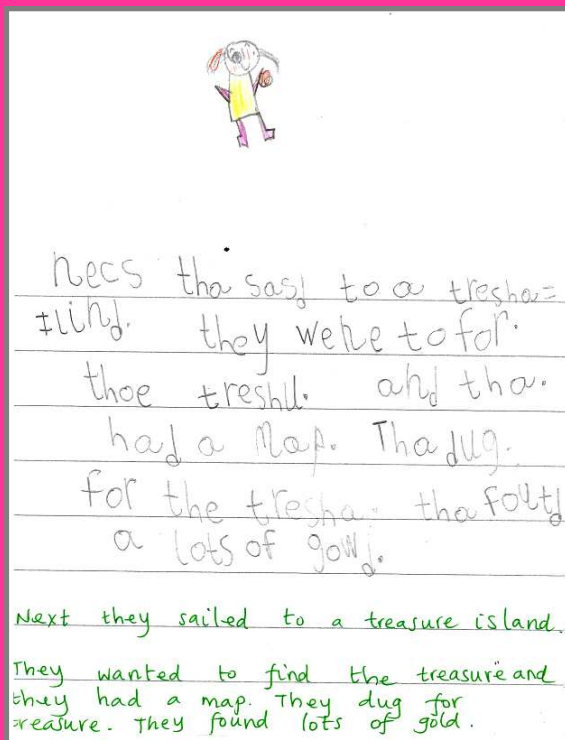 necs tha sasd to a tresha=
ilind. they wene to for.
thoe treshu. and tha.
had a Map. Tha dug.
for the tresha. tha foutd
a lots of gowd.
Next they sailed to a treasure island.
They wanted to find the treasure and
they had a map. They dug for
treasure. They found lots of gold.